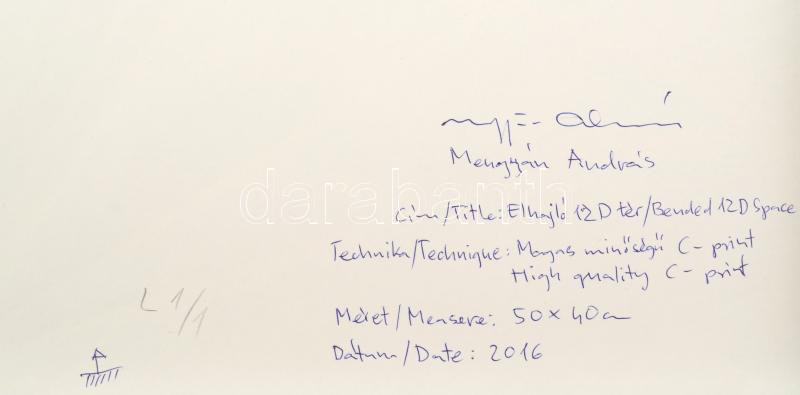 Mengyán András
darabanth
Cím/Title: Elhajló 12D tér/Bended 12D Space
Technika/Technique: Magas minőségű C-print
High quality C-print
Méret/Mensere: 50×40cm
L 1/1
Dátum/Date: 2016